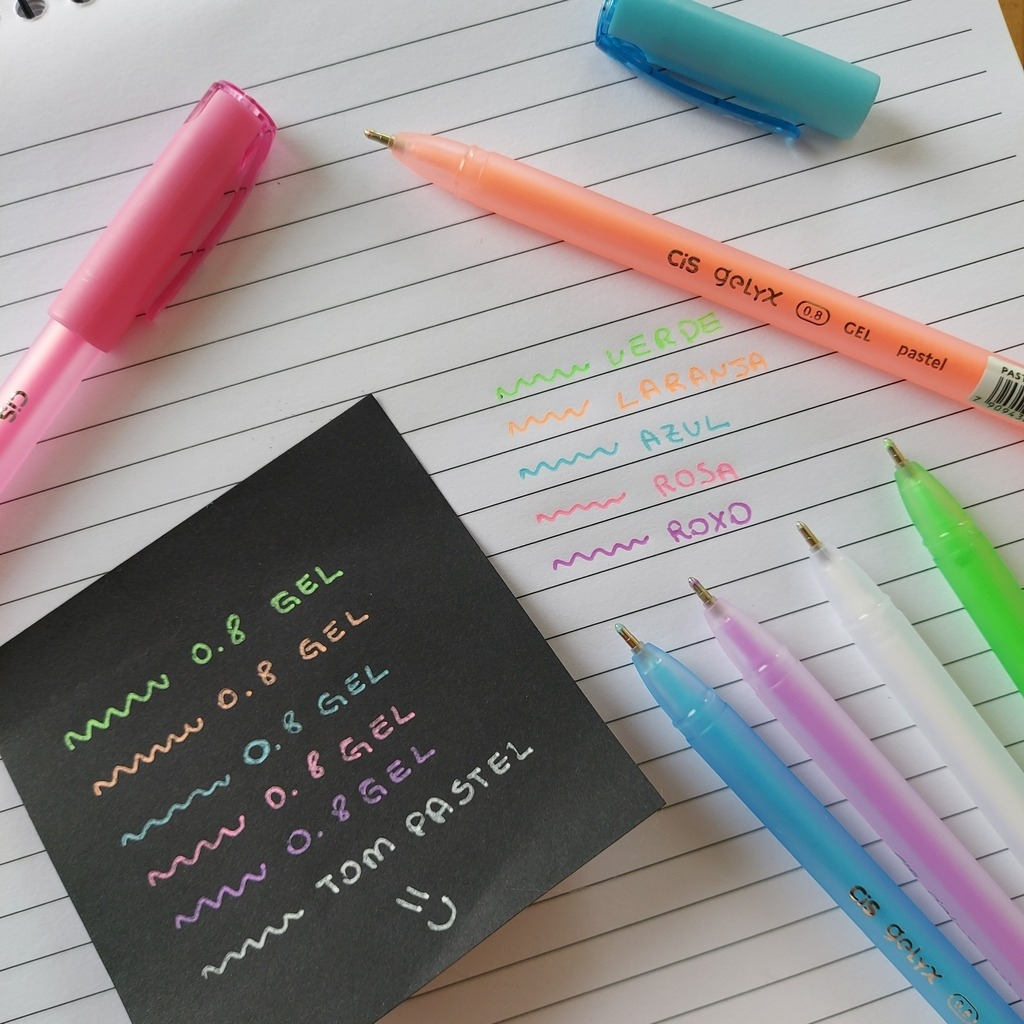 cis gelyx 0.8 GEL pastel
PAST
cis
VERDE
LARANJA
AZUL
ROSA
ROXO
0.8 GEL
0.8 GEL
0.8 GEL
0.8 GEL
0.8 GEL
TOM PASTEL
cis gelyx 0.8